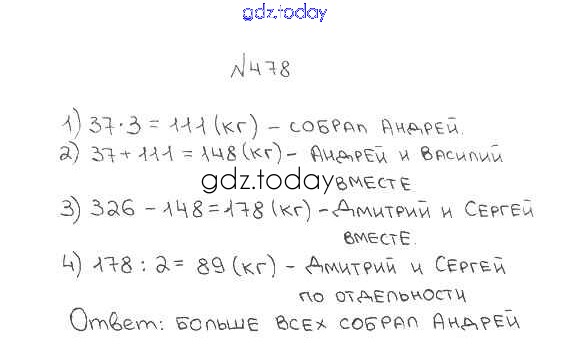 gdz.today
№478
1) 37·3=111(кг) – СОБРАЛ АНДРЕЙ.
2) 37+111=148(кг) – АНДРЕЙ И ВАСИЛИЙ
gdz.today ВМЕСТЕ
3) 326-148=178(кг) – ДМИТРИЙ И СЕРГЕЙ
ВМЕСТЕ.
4) 178:2=89(кг) – ДМИТРИЙ И СЕРГЕЙ
ПО ОТДЕЛЬНОСТИ
Ответ: БОЛЬШЕ ВСЕХ СОБРАЛ АНДРЕЙ